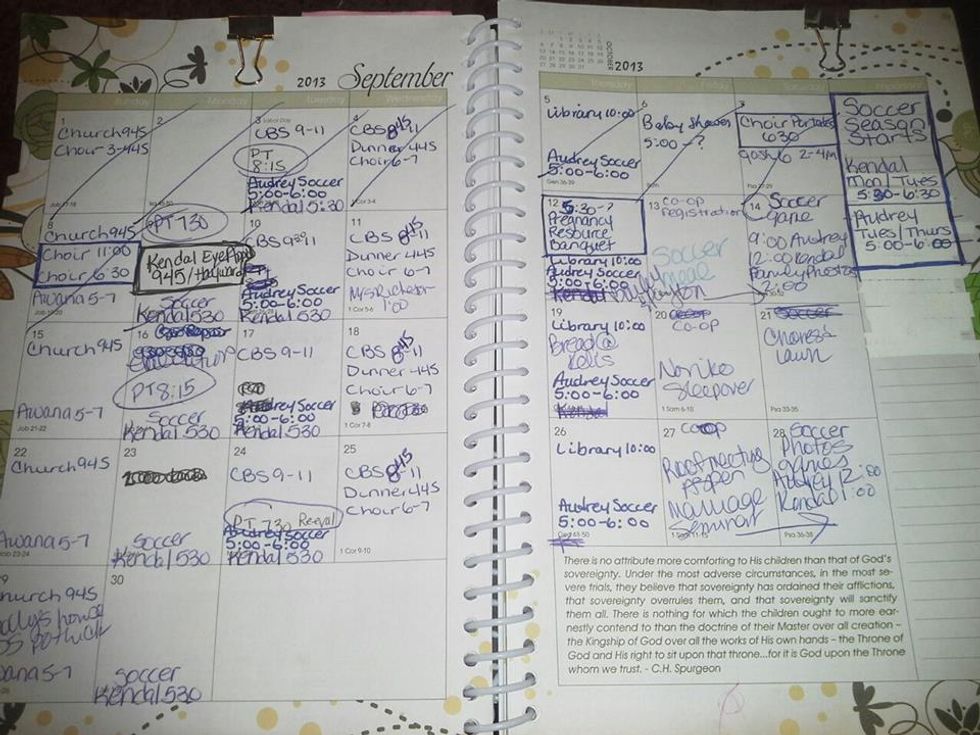 2013 September
Sunday
Monday
Tuesday
Wednesday
1
Church 945
Choir 3-445
2
3
CBS 9-11
PT
8:15
Audrey Soccer
5:00-6:00
Kendal 5:30
4
CBS 845-11
Dunner 445
Choir 6-7
8
Church 945
Choir 11:00
Choir 6:30
Awana 5-7
PT 730
Kendal Eye Appt
945/Hayward
Soccer
Kendal 530
10
CBS 9-11
Audrey Soccer
5:00-6:00
Kendal 530
11
CBS 845-11
Dunner 445
Choir 6-7
1:00
1 Cor 5-6
15
Church 945
Awana 5-7
Job 21-22
16
PT 8:15
Soccer
Kendal 530
17
CBS 9-11
Audrey Soccer
5:00-6:00
Kendal 530
18
CBS 845-11
Dunner 445
Choir 6-7
1 Cor 7-8
22
Church 945
Awana 5-7
Job 23-24
23
Soccer
Kendal 530
24
CBS 9-11
PT 730 Re-eval
Audrey Soccer
5:00-6:00
Kendal 530
25
CBS 845-11
Dunner 445
Choir 6-7
1 Cor 9-10
9
hurch 945
wana 5-7
30
Soccer
Kendal 530
OCTOBER
2013
5
Library 10:00
Audrey Soccer
5:00-6:00
6
Baby Shower
5:00 -?
Choir Portakes
630
2-4pm
Soccer
Season
Starts
Kendal
Mon/Tues
5:30-6:30
Audrey
Tues/Thurs
5:00-6:00
12
5:30-?
Pregnancy
Resource
Banquet
Library 10:00
Audrey Soccer
5:00-6:00
Kendal
13
co-op
registration
Soccer
14
Soccer
game
9:00 Audrey
12:00 Kendal
Family Photos
2:00
19
Library 10:00
Bread @
Kelis
Audrey Soccer
5:00-6:00
20
co-op
Noriko
Sleepover
1 Sam 6-10
21
Chores &
Lawn
Psa 33-35
26
Library 10:00
Audrey Soccer
5:00-6:00
27
Coop
Roof meeting
Aspen
Marriage
Seminar
28
Soccer
Photos
games
Audrey 12:00
Kendal 1:00
Psa 36-38
There is no attribute more comforting to His children than that of God's
sovereignty. Under the most adverse circumstances, in the most se-
vere trials, they believe that sovereignty has ordained their afflictions,
that sovereignty overrules them, and that sovereignty will sanctify
them all. There is nothing for which the children ought to more ear-
nestly contend to than the doctrine of their Master over all creation –
the Kingship of God over all the works of His own hands – the Throne of
God and His right to sit upon that throne...for it is God upon the Throne
whom we trust. - C.H. Spurgeon